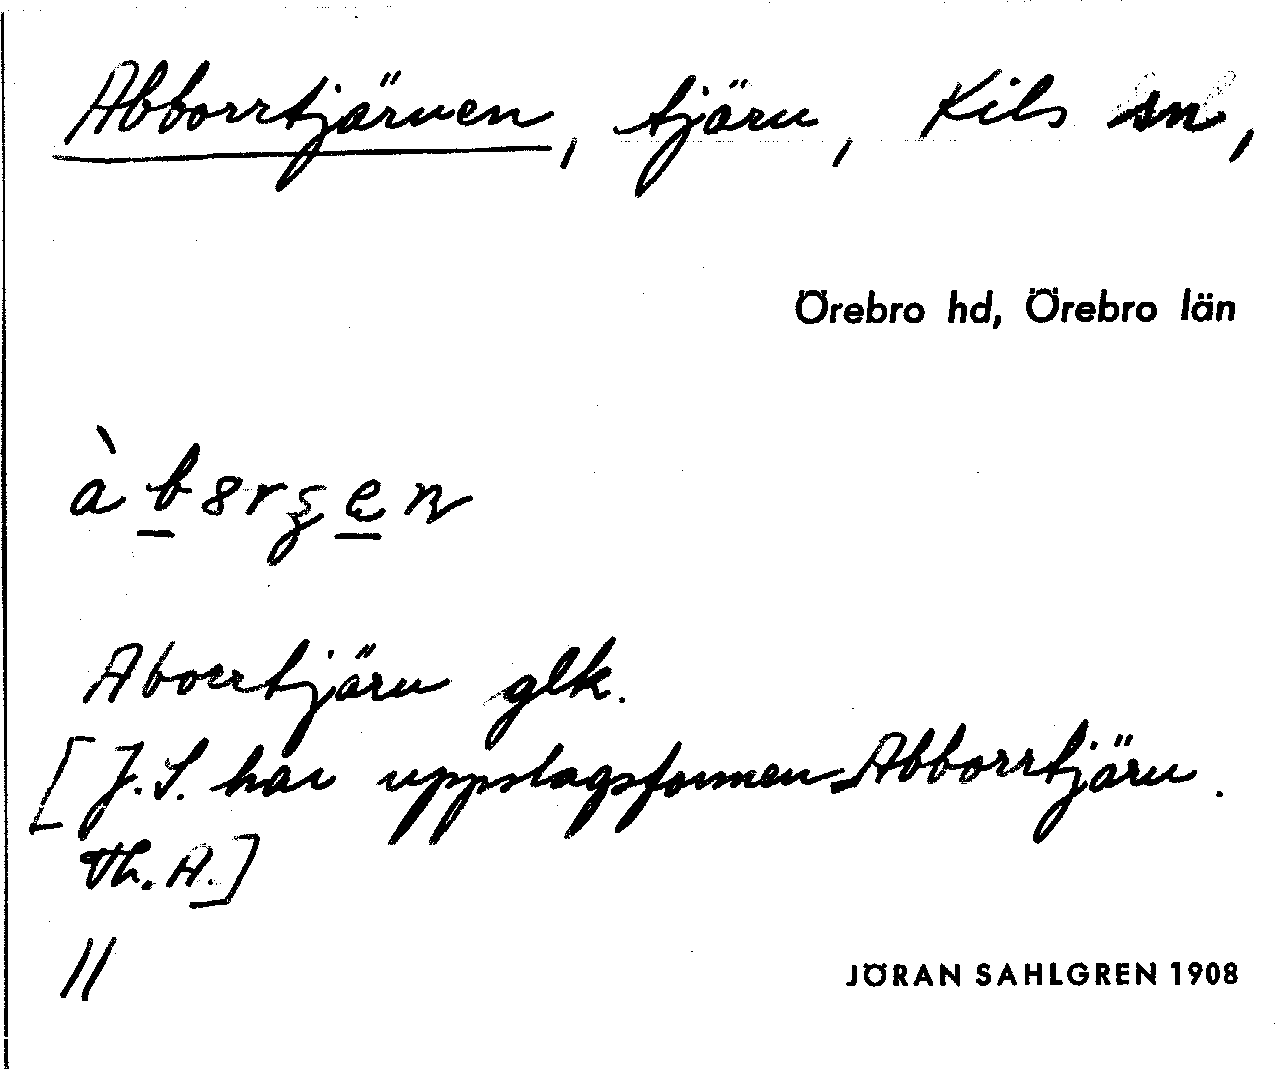 Abborrtjärnen, tjärn, Kils sn,
Örebro hd, Örebro län
Aborrtjärn glk.
[J.S. har uppslagsformen Abborrtjärn.
Th. A.]
//
JÖRAN SAHLGREN 1908